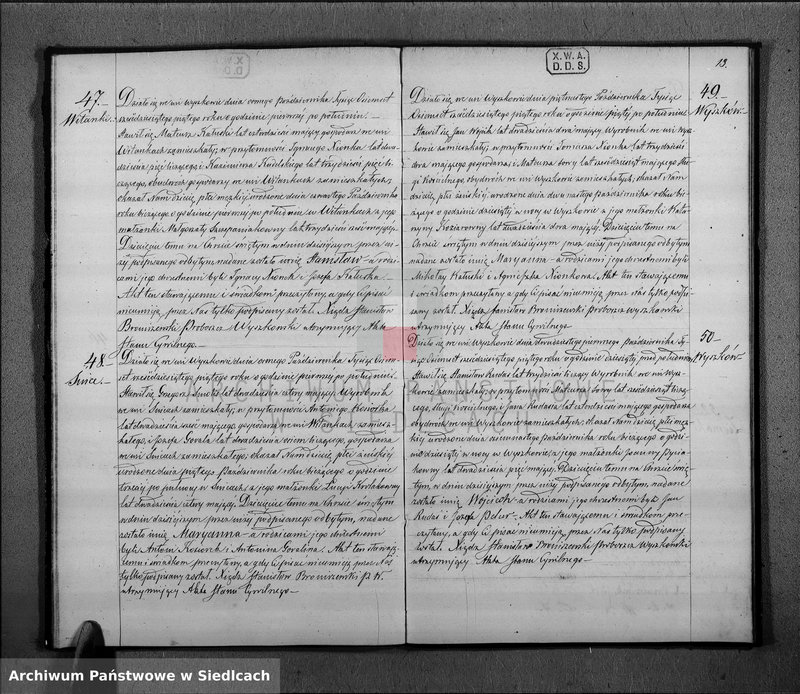 X.W.A.
D.D.S.
13.
47.
Witanki.
Działo się w wsi Wyszkowie dnia ósmego Października Tysiąc Ośmset
sześćdziesiątego piątego roku o godzinie pierwszej po południu.
Stawił się Mateusz Katucki lat czterdzieści mający gospodarz w wsi
Witankach zamieszkały, w przytomności Ignacego lat dwa-
dzieścia pięć liczącego i Kazimierza lat trzydzieści pięć li-
czącego, obudwóch gospodarzy w wsi Witankach zamieszkałych,
okazał Nam dziecię płci męzkiej urodzone dnia czwartego Października
roku bieżącego o godzinie po południu w Witankach z jego
małżonki Małgorzaty lat trzydzieści mającej.
Dziecięciu temu na Chrzcie świętym w dniu dzisiejszym przez
podpisanego odbytym nadane zostało imię Stanisław a rodzi-
cami jego chrzestnemi byli Ignacy i Józefa Katucka.
Akt ten stawającemu i świadkom przeczytany, a gdy Ci pisać
nieumieją, przez Nas tylko podpisany został. Xiądz Stanisław
Broniszewski Proboszcz Wyszkowski utrzymujący Akta
Stanu Cywilnego.
48.
Śnice.
Działo się w wsi Wyszkowie dnia ósmego Października Tysiąc Ośm-
set sześćdziesiątego piątego roku o godzinie pierwszej po południu.
Stawił się Grzegorz lat dwadzieścia cztery mający Wyrobnik
w wsi Śnicach zamieszkały, w przytomności Antoniego
lat dwadzieścia sześć mającego gospodarza w wsi Witankach zamiesz-
kałego, i Józefa Gorala lat dwadzieścia ośm liczącego, gospodarza
w wsi Śnicach zamieszkałego, okazał Nam dziecię płci żeńskiej
urodzone dnia piątego Października roku bieżącego o godzinie
trzeciej po północy w Śnicach z jego małżonki Łucyi
lat dwadzieścia cztery mającej. Dziecięciu temu na Chrzcie świętym
w dniu dzisiejszym przez niżej podpisanego odbytym, nadane
zostało imię Maryanna a rodzicami jego chrzestnemi
byli Antoni i Antonina Goralina. Akt ten stawają-
cemu i świadkom przeczytany, a gdy Ci pisać nieumieją przez Nas
tylko podpisany został. Xiądz Stanisław Broniszewski P. W.
utrzymujący Akta Stanu Cywilnego
49.
Wyszków.
Działo się w wsi Wyszkowie dnia piętnastego Października Tysiąc
Ośmset sześćdziesiątego piątego roku o godzinie piątej po południu.
Stawił się Jan lat dwadzieścia dwa mający, Wyrobnik w wsi Wy-
szkowie zamieszkały, w przytomności Tomasza lat trzydzieści
dwa mającego gospodarza, i Mateusza Sowy lat sześćdziesiąt mającego Słu-
gi Kościelnego, obydwóch w wsi Wyszkowie zamieszkałych, okazał Nam
dziecię płci żeńskiej, urodzone dnia dwunastego Października roku bie-
żącego o godzinie dziesiątej w nocy w Wyszkowie z jego małżonki Kata-
rzyny lat dwadzieścia dwa mającej. Dziecięciu temu na
Chrzcie świętym w dniu dzisiejszym przez niżej podpisanego odbytym
nadane zostało imię Maryanna a rodzicami jego chrzestnemi byli
Mikołaj Katucki i Agnieszka. Akt ten stawającemu
i świadkom przeczytany a gdy Ci pisać nieumieją, przez Nas tylko podpi-
sany został. Xiądz Stanisław Broniszewski Proboszcz Wyszkowski
utrzymujący Akta Stanu Cywilnego.
50.
Wyszków.
Działo się w wsi Wyszkowie dnia dwudziestego pierwszego Października Ty-
siąc Ośmset sześćdziesiątego piątego roku o godzinie dziesiątej przed południem.
Stawił się Stanisław lat trzydzieści liczący Wyrobnik w wsi Wysz-
kowie zamieszkały, w przytomności Mateusza Sowy lat sześćdziesiąt liczą-
cego, sługi kościelnego, i Jana Rudasia lat czterdzieści mającego gospodarza
obydwóch w wsi Wyszkowie zamieszkałych, okazał Nam dziecię płci męz-
kiej urodzone dnia Października roku bieżącego o godzi-
nie w nocy w Wyszkowie z jego małżonki Joanny
lat dwadzieścia pięć mającej. Dziecięciu temu na Chrzcie świę-
tym, w dniu dzisiejszym, przez niżej podpisanego odbytym, nadane
zostało imię Wojciech a rodzicami jego chrzestnemi byli Jan
Rudaś i Józefa. Akt ten stawającemu i świadkom prze-
czytany, a gdy Ci pisać nieumieją, przez Nas tylko podpisany
został. Xiądz Stanisław Broniszewski Proboszcz Wyszkowski
utrzymujący Akta Stanu Cywilnego
ARCHIWUM PAŃSTWOWE
W SIEDLCACH
Archiwum Państwowe w Siedlcach